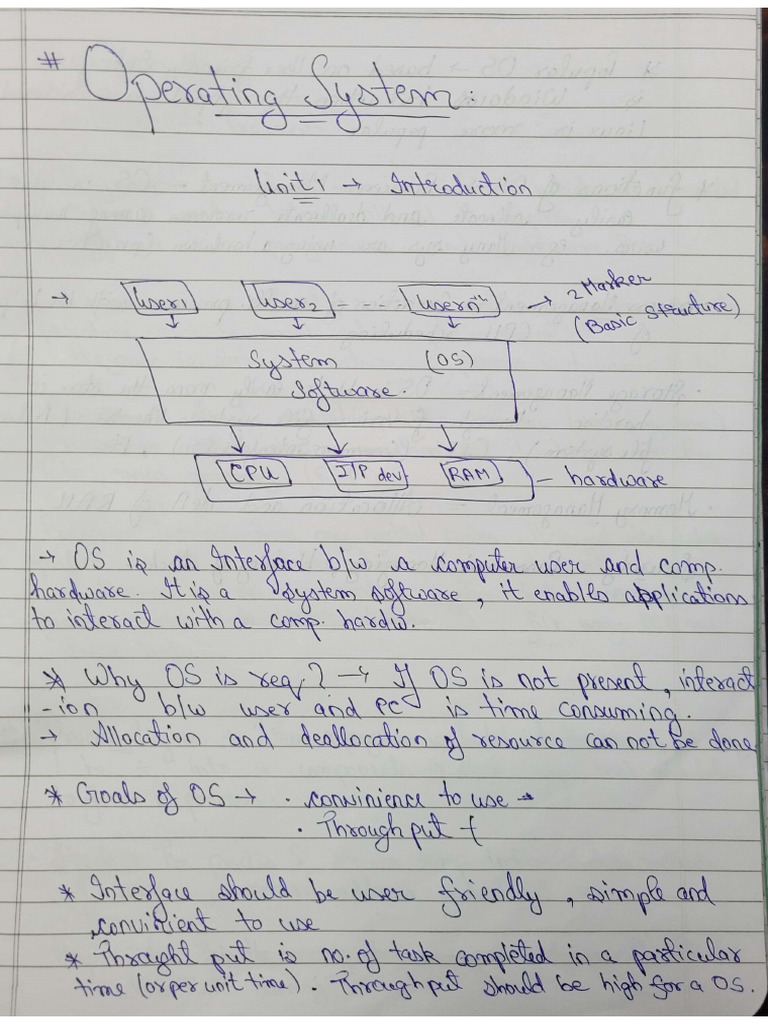 # Operating System:
Unit 1 → Introduction
→ User1 User2 - - - - Usernth → 2 Marker
(Basic Structure)
System (OS)
Software.
CPU I/P dev RAM - hardware
→ OS is an Interface b/w a computer user and comp.
hardware. It is a system software, it enables applications
to interact with a comp. hardw.
* Why OS is req? → If OS is not present, interact
-ion b/w user and PC is time consuming.
→ Allocation and deallocation of resource can not be done
* Goals of OS → . convinience to use →
. Through put
* Interface should be user friendly, simple and
convinient to use
* Thraught put is no. of task completed in a particular
time (or per unit time). Throughput should be high for a OS.